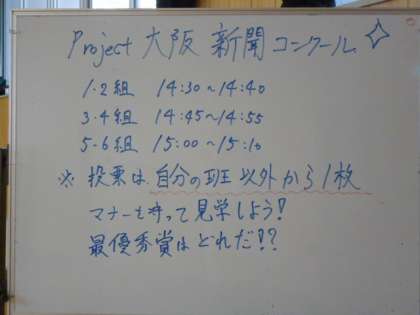 Project 大阪 新聞コンクール
1・2組 14:30～14:40
3・4組 14:45～14:55
5・6組 15:00～15:10
※ 投票は、自分の班以外から1枚
マナーを守って見学しよう!
最優秀賞はどれだ!?